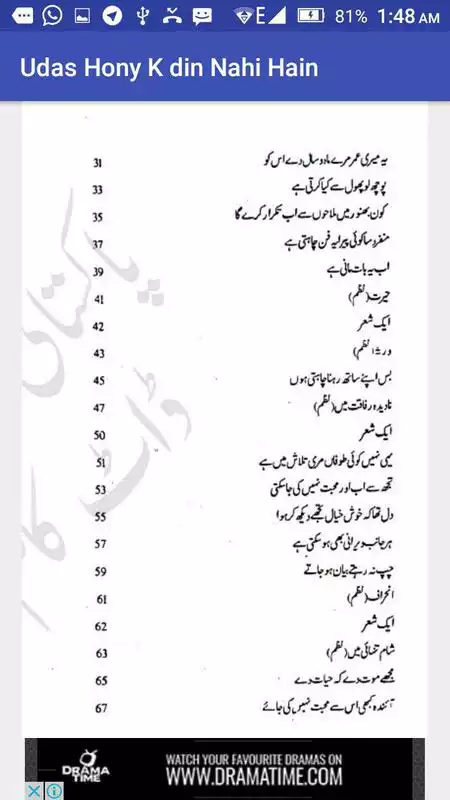 81% 1:48 AM
Udas Hony K din Nahi Hain
یہ میری عمر مرے ماہ و سال دے اس کو 31
پوچھ لو پھول سے کیا کرتی ہے 33
کون بھنور میں ملاحوں سے اب تکرار کرے گا 35
منفرد سا کوئی پیرایہ فن چاہتی ہے 37
اب یہ بات مانی ہے 39
حیرت (نظم) 41
ایک شعر 42
ورثہ (نظم) 43
بس اپنے ساتھ رہنا چاہتی ہوں 45
نادیدہ رفاقت میں (نظم) 47
ایک شعر 50
یہی نہیں کوئی طوفاں مری تلاش میں ہے 51
تجھ سے اب اور محبت نہیں کی جا سکتی 53
دل تھا کہ خوش خیال تجھے دیکھ کر ہوا 55
ہر جانب ویرانی بھی ہو سکتی ہے 57
چپ نہ رہتے بیان ہو جاتے 59
انحراف (نظم) 61
ایک شعر 62
شام تنہائی میں (نظم) 63
مجھے موت دے کہ حیات دے 65
آئندہ کبھی اس سے محبت نہیں کی جائے 67
پاکستانی
ڈاٹ کام
DRAMA TIME
WATCH YOUR FAVOURITE DRAMAS ON
WWW.DRAMATIME.COM